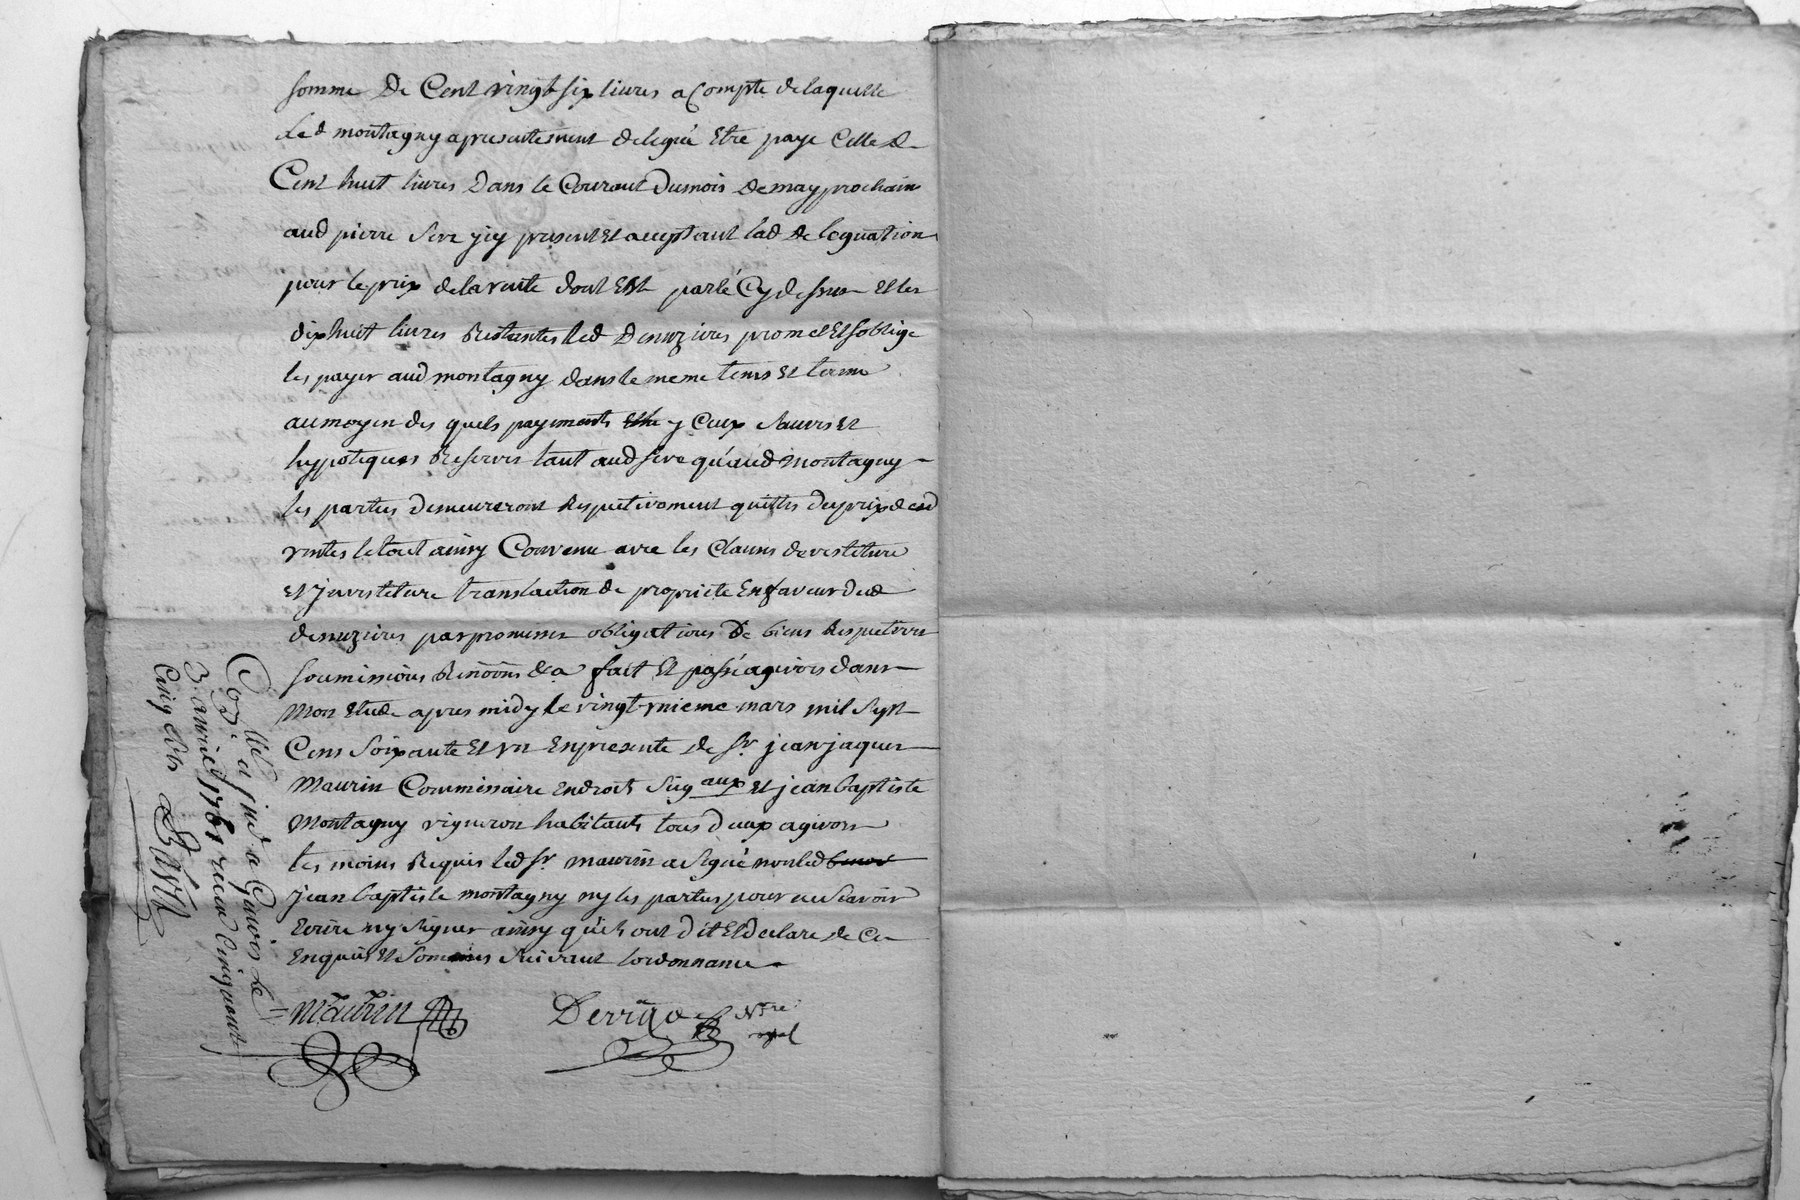 somme De Cent vingt six livres a Compte de laquelle
led montagny a presentement delegué Etre paye Celle de
Cent huit livres Dans le Courant Du mois de may prochain
aud pierre Sere jcy present et aceptant lad De leguation
pour le prix de la vente dont Est parlé Cy dessus et les
dix huit livres Restantes led Demuzieres promet Et soblige
les payer aud montagny dans le meme tems et terme
au moyen des quels payements y Ceux Sauves et
hypoteques Reservés tant aud Sere qu'aud Montagny
les partes Demeureront Respectivement quittes du prix desd
ventes le tout ainsy Convenu avec les Clauses devestiture
et jnvestiture translaction de propriete En faveur dud
demuzieres par promesses obligations De biens Respectives
soumissions Renonns &a fait Et passé a givors dans
Mon Etude apres midy le vingt vnieme mars mil Sept
Cens Soixante Et vn En presence de Sr jean jaques
Maurin Commissaire en droits Seigaux et jean baptiste
Montagny vigneron habitants tous deux a givors
tes moins Requis led Sr maurin a Signé non led
jean baptiste montagny ny les parties pour ne Scavoir
Ecrire ny Signer ainsy qu'ils ont dit Et declare de Ce
Enquis Et Sommés Suivant l'ordonnance
Maurin
Derriga Nre
royal
Conllé et jnsé a Givors le
3 avril 1761 recu Cinq
Cinq sols